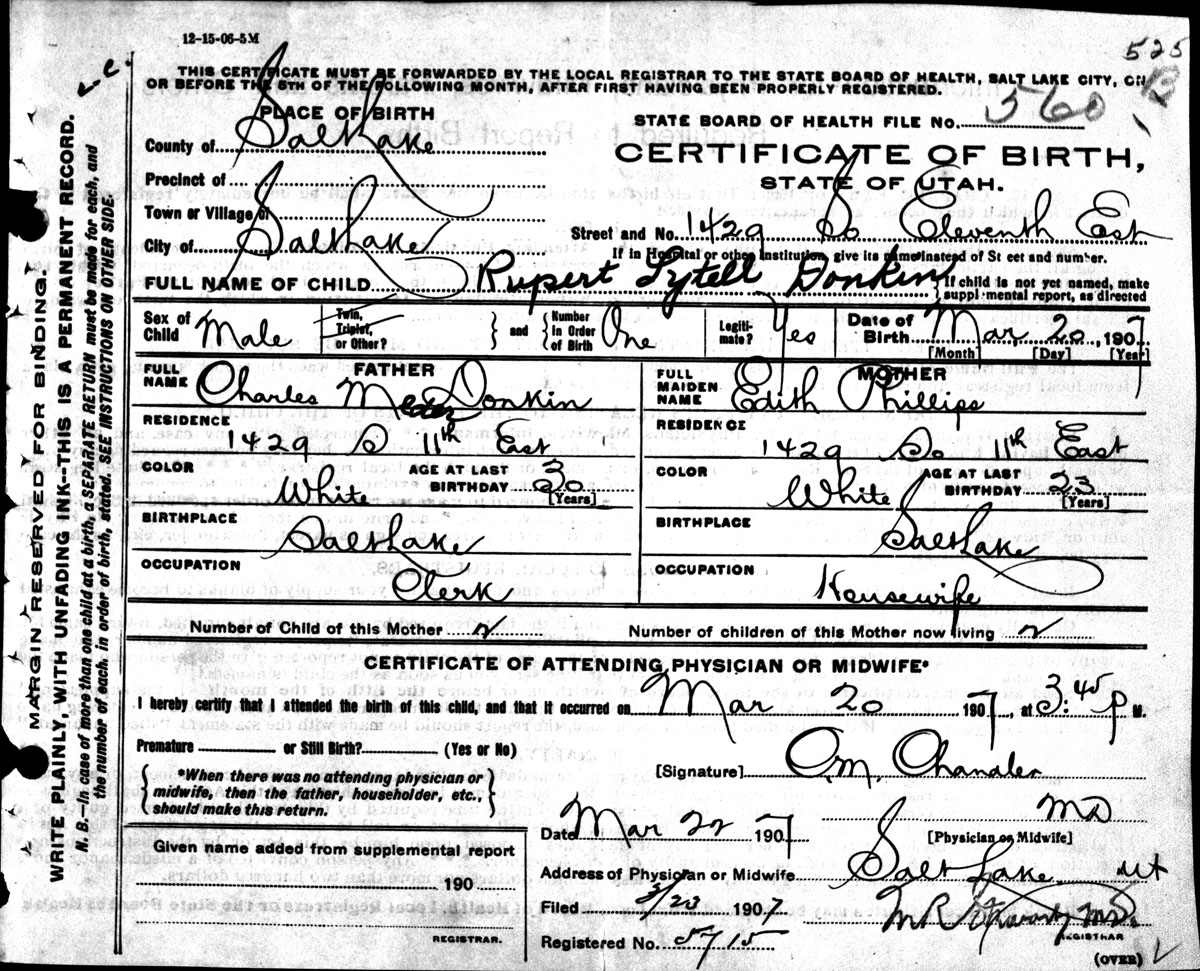 12-15-06-5M
525
THIS CERTIFICATE MUST BE FORWARDED BY THE LOCAL REGISTRAR TO THE STATE BOARD OF HEALTH, SALT LAKE CITY, ON
OR BEFORE THE 5TH OF THE FOLLOWING MONTH, AFTER FIRST HAVING BEEN PROPERLY REGISTERED.
13
PLACE OF BIRTH
STATE BOARD OF HEALTH FILE NO. 560
County of Salt Lake
CERTIFICATE OF BIRTH,
Precinct of
STATE OF UTAH.
Town or Village of
Street and No. 1429 So Eleventh East
City of Salt Lake
If in Hospital or other institution, give its name instead of St eet and number.
FULL NAME OF CHILD Rupert Lytell Donkin
If child is not yet named, make
suppl mental report, as directed
Sex of Child Male
Twin, Triplet, or Other?
and
Number in Order of Birth One
Legiti-mate? Yes
Date of Birth Mar 20, 1907
[Month] [Day] [Year]
FATHER
FULL NAME Charles Donkin
RESIDENCE
1429 S 11th East
COLOR White
AGE AT LAST BIRTHDAY
[Years]
BIRTHPLACE
Salt Lake
OCCUPATION
Clerk
MOTHER
FULL MAIDEN NAME Edith Phillips
RESIDENCE
1429 So 11th East
COLOR White
AGE AT LAST BIRTHDAY 23
[Years]
BIRTHPLACE
Salt Lake
OCCUPATION
Housewife
Number of Child of this Mother 2
Number of children of this Mother now living 2
CERTIFICATE OF ATTENDING PHYSICIAN OR MIDWIFE*
I hereby certify that I attended the birth of this child, and that it occurred on Mar 20 1907, at 3:45 P M.
Premature or Still Birth? (Yes or No)
[Signature] O.M. Chandler
*When there was no attending physician or
midwife, then the father, householder, etc.,
should make this return.
MD
Date Mar 22 1907
[Physician or Midwife]
Given name added from supplemental report
190
REGISTRAR.
Address of Physician or Midwife Salt Lake Ut
Filed 3/23 1907
REGISTRAR
Registered No. 5715
(OVER)
MARGIN RESERVED FOR BINDING.
WRITE PLAINLY, WITH UNFADING INK--THIS IS A PERMANENT RECORD.
N. B.—In case of more than one child at a birth, a SEPARATE RETURN must be made for each, and
the number of each, in order of birth, stated. SEE INSTRUCTIONS ON OTHER SIDE.